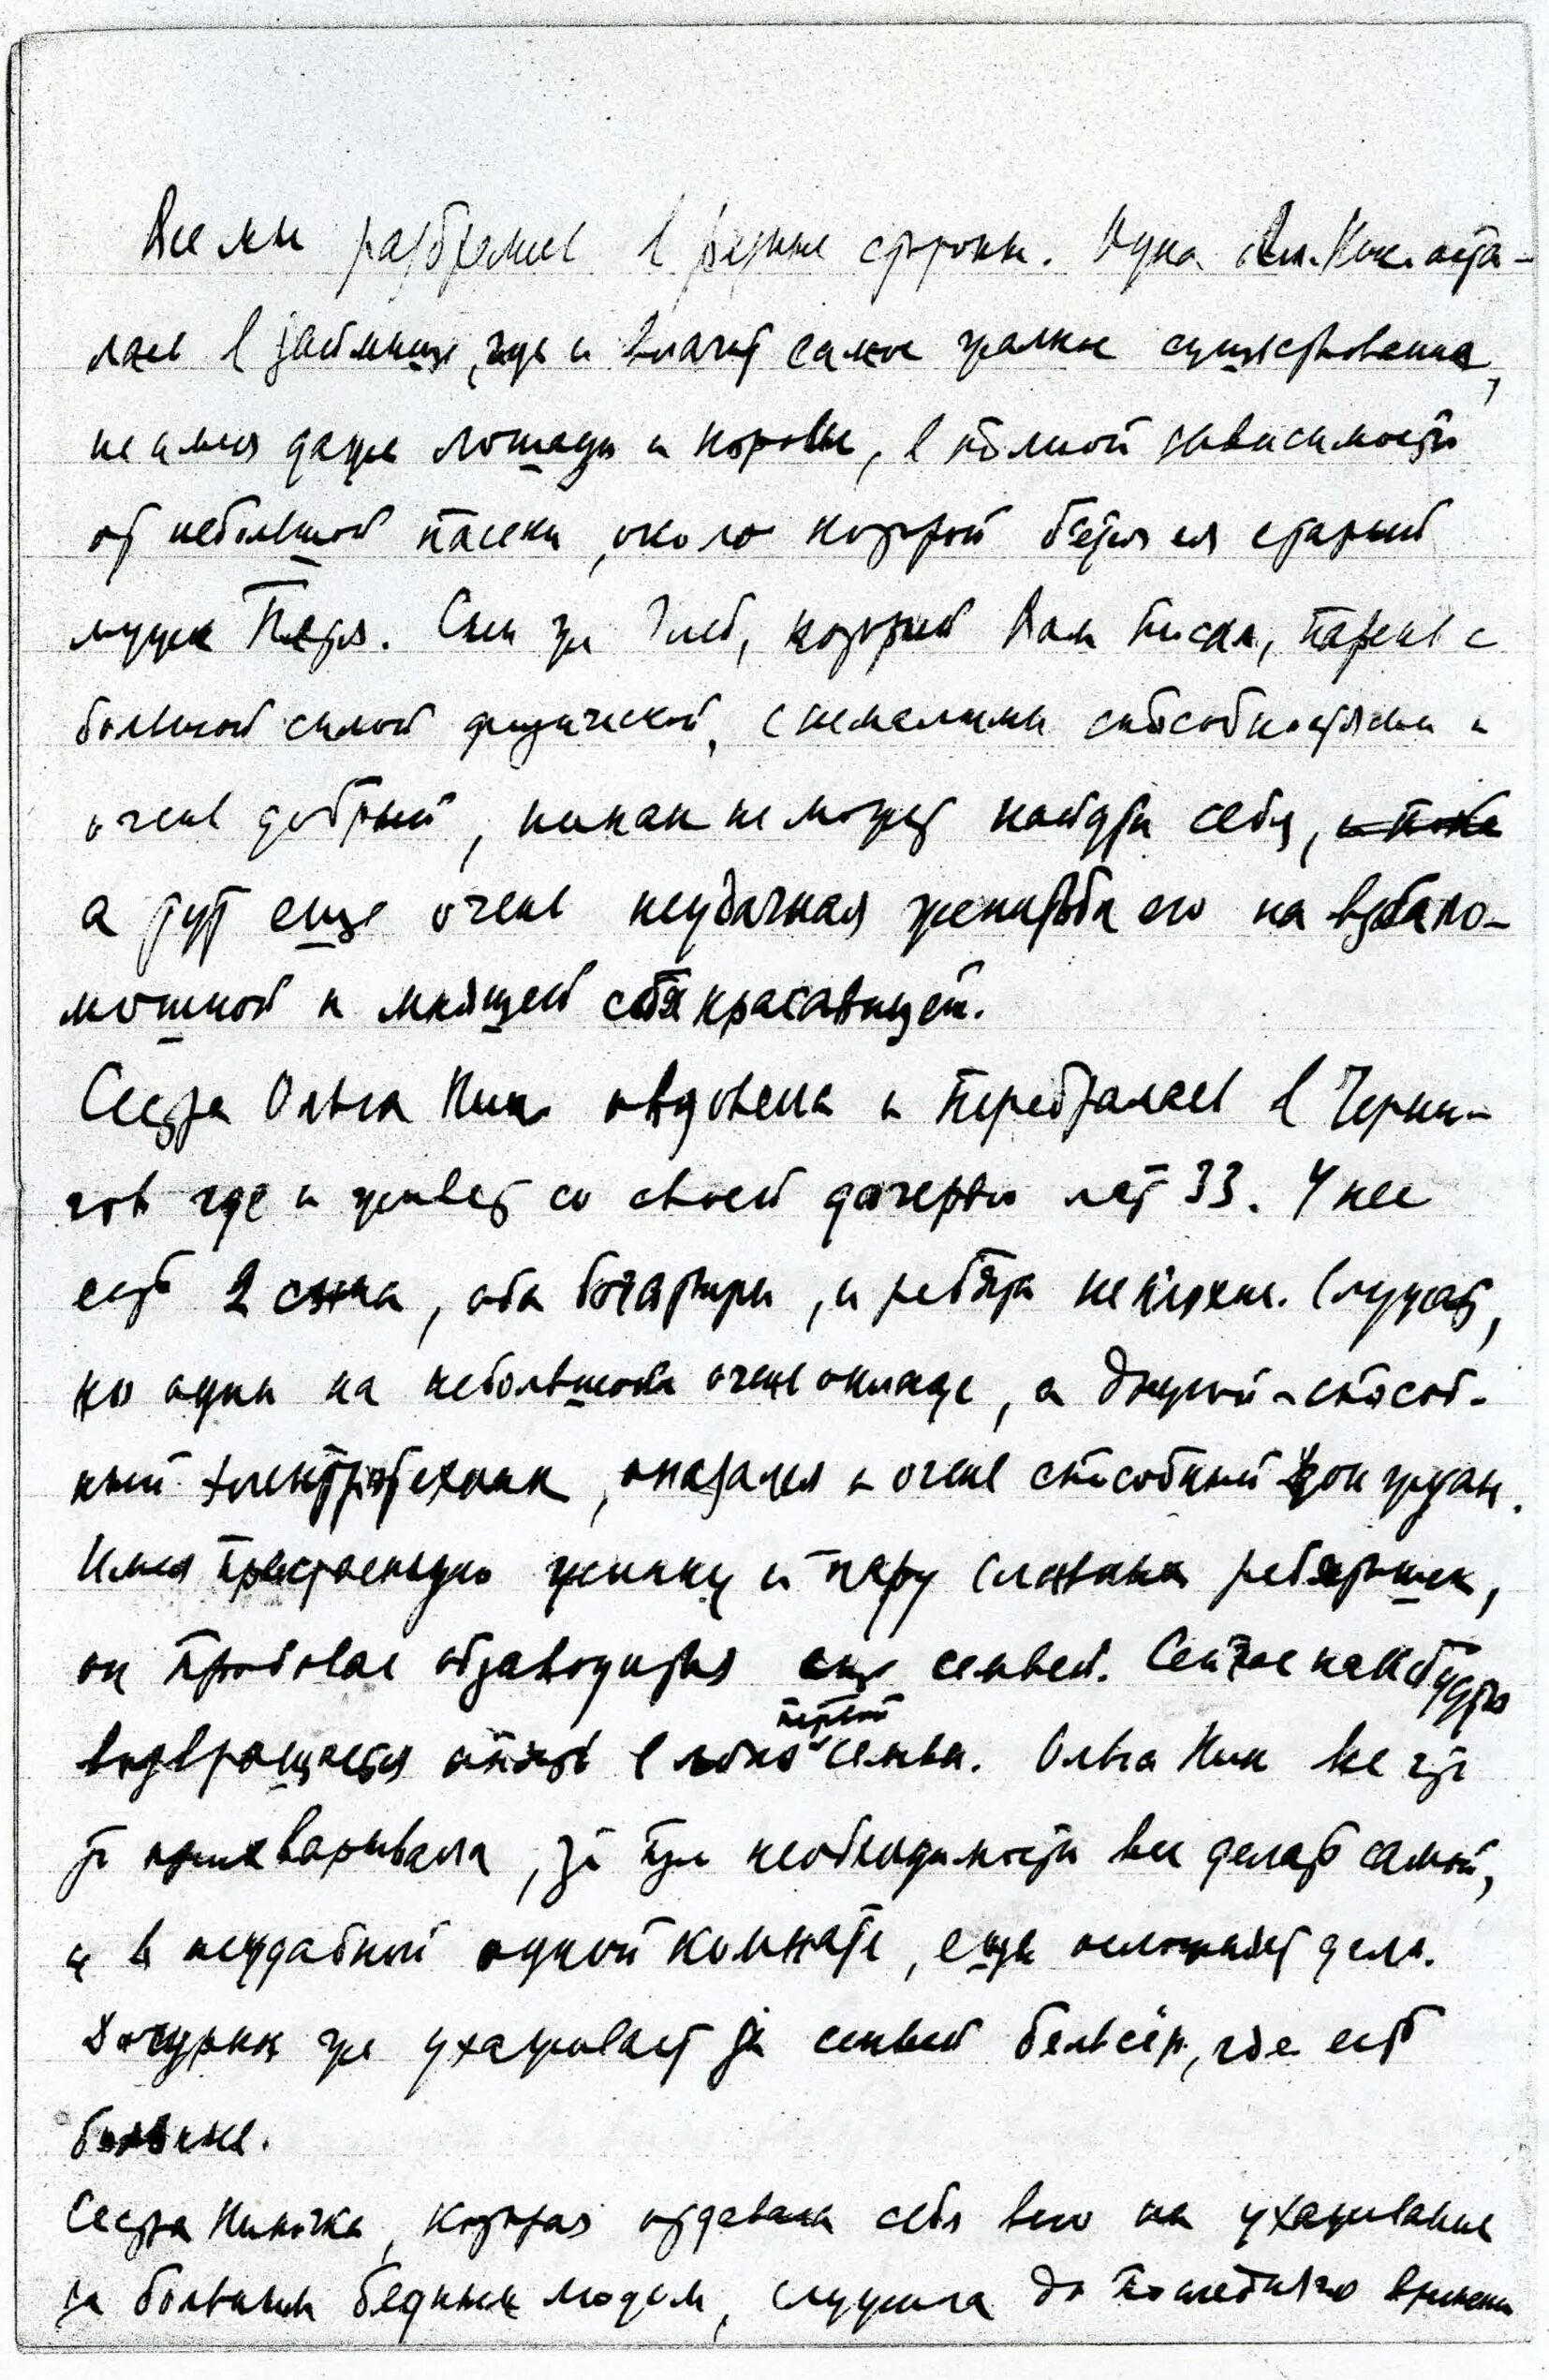 Все мы разбрелись в разные стороны. Одна Ал. Ник. оста-
лась в займище, где и влачит самое жалкое существование,
не имея даже лошади и коровы, в полной зависимости
от небольшой пасеки, около которой бьётся ея старый
мужек Петя. Сын же Глеб, который Вам писал, парень с
большой силой физической, с немалыми способностями и
очень добрый, никак не может найти себя,
а тут еще очень неудачная женитьба его на взбало-
мошной и мнящей себя красавицей.
Сестра Ольга Ник. овдовела и перебралась в Черни-
гов где и живет со своей дочерью лет 33. У нее
есть 2 сына, оба богатыри, и ребята неплохие. Служат,
но один на небольшом очень окладе, а другой - способ-
ный электротехник, оказался и очень способный Дон Жуан.
Имея прекрасную женку и пару славных ребятишек,
он пробовал обзаводиться еще семьей. Сейчас как будто
возвращается опять в лоно первой семьи. Ольга Ник все что
то прихварывала, да при необходимости все делать самой,
и в неудобной одной комнате, еще осложняет дело.
Дочурка же ухаживает за семьей, где есть
больные.
Сестра Ниночка, которая отдавала себя всю на ухаживание
за больным бедным людом, служила до последнего времени